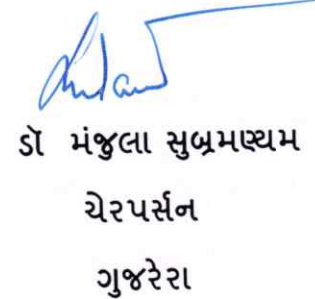 ડૉ મંજુલા સુબ્રમણ્યમ
ચેરપર્સન
ગુજરેરા